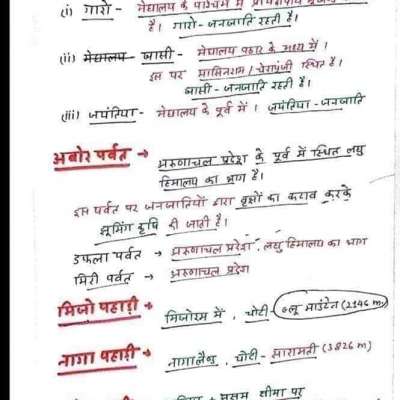 (i) गारो - मेघालय के पश्चिम में
है। गारो-जनजाति रहती है।
(ii) मेघालय - खासी - मेघालय पठार के मध्य में।
इस पर मासिनराम/चेरापूंजी स्थित है।
खासी - जनजाति रहती है।
(iii) जयंतिया - मेघालय के पूर्व में। जयंतिया - जनजाति
अबोर पर्वत → अरुणाचल प्रदेश के पूर्व में स्थित लघु
हिमालय का भाग है।
इस पर्वत पर जनजातियों द्वारा वृक्षों का कटाव करके
झूमिंग कृषि की जाती है।
डफला पर्वत → अरुणाचल प्रदेश, लघु हिमालय का भाग
मिरी पर्वत → अरुणाचल प्रदेश
मिजो पहाड़ी → मिजोरम में, चोटी - ब्लू माउंटेन (2146 m)
नागा पहाड़ी → नागालैण्ड, चोटी - सारामती (3826 m)
+ असम सीमा पर